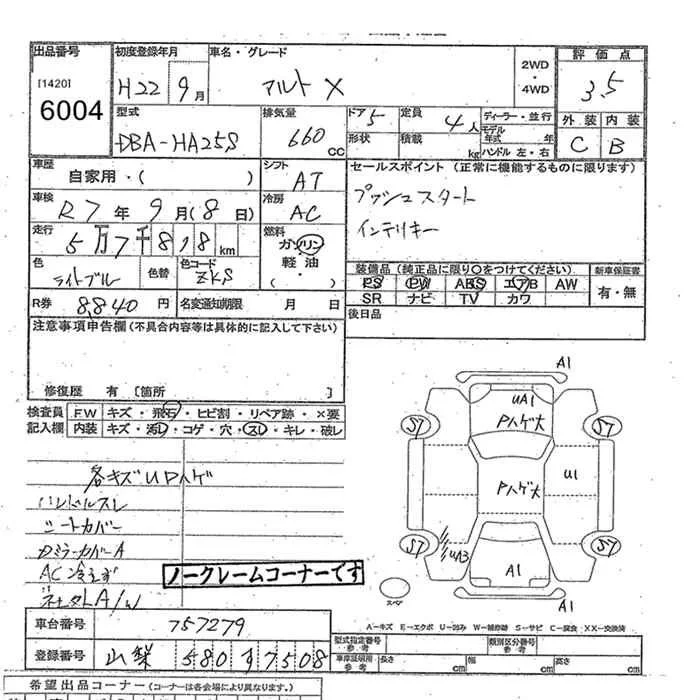 出品番号 初度登録年月 車名・グレード 評価点
[1420] 6004 H22 9月 アルト X 2WD・4WD 3.5
外装 内装
C B
型式 排気量 ドア 5 定員 4人 ディーラー・並行
DBA-HA25S 660cc 形状 積載 kg モデル年式 年
ハンドル 左・右
車歴 シフト セールスポイント(正常に機能するものに限ります)
自家用・( ) AT
プッシュスタート
車検 冷房
R7年9月(8日) AC
インテリキー
走行 燃料
5万7千818km ガソリン・軽油・( )
色 色替 色コード 装備品(純正品に限り○をつけてください) 新車保証書
ライトブル ZKS PS PW ABS エアB AW 有・無
SR ナビ TV カワ
R券 8840円 名変通知期限 月 日
後日品
注意事項申告欄(不具合内容等は具体的に記入して下さい)
修復歴 有 [箇所 ]
検査員 FW キズ・飛石・ヒビ割・リペア跡・×要
記入欄 内装 キズ・汚レ・コゲ・穴・スレ・キレ・破レ
各キズUPハゲ
ハンドルスレ
シートカバー
ドミラーカバーA
AC冷えず
ノークレームコーナーです
A1
UA1
Pハゲ大
S7 S7
U1
Pハゲ大
S7 S7
UA3
A1
A1
スペア
A-キズ E-エクボ U-凹み W-補修跡 S-サビ C-腐食 XX-交換済
車台番号 757279
登録番号 山梨 580 す 7508
型式指定番号 参考 類別区分番号 参考
車庫証明用 参考 長さ cm 幅 cm 高さ cm
希望出品コーナー(コーナーは各会場により異なります。)